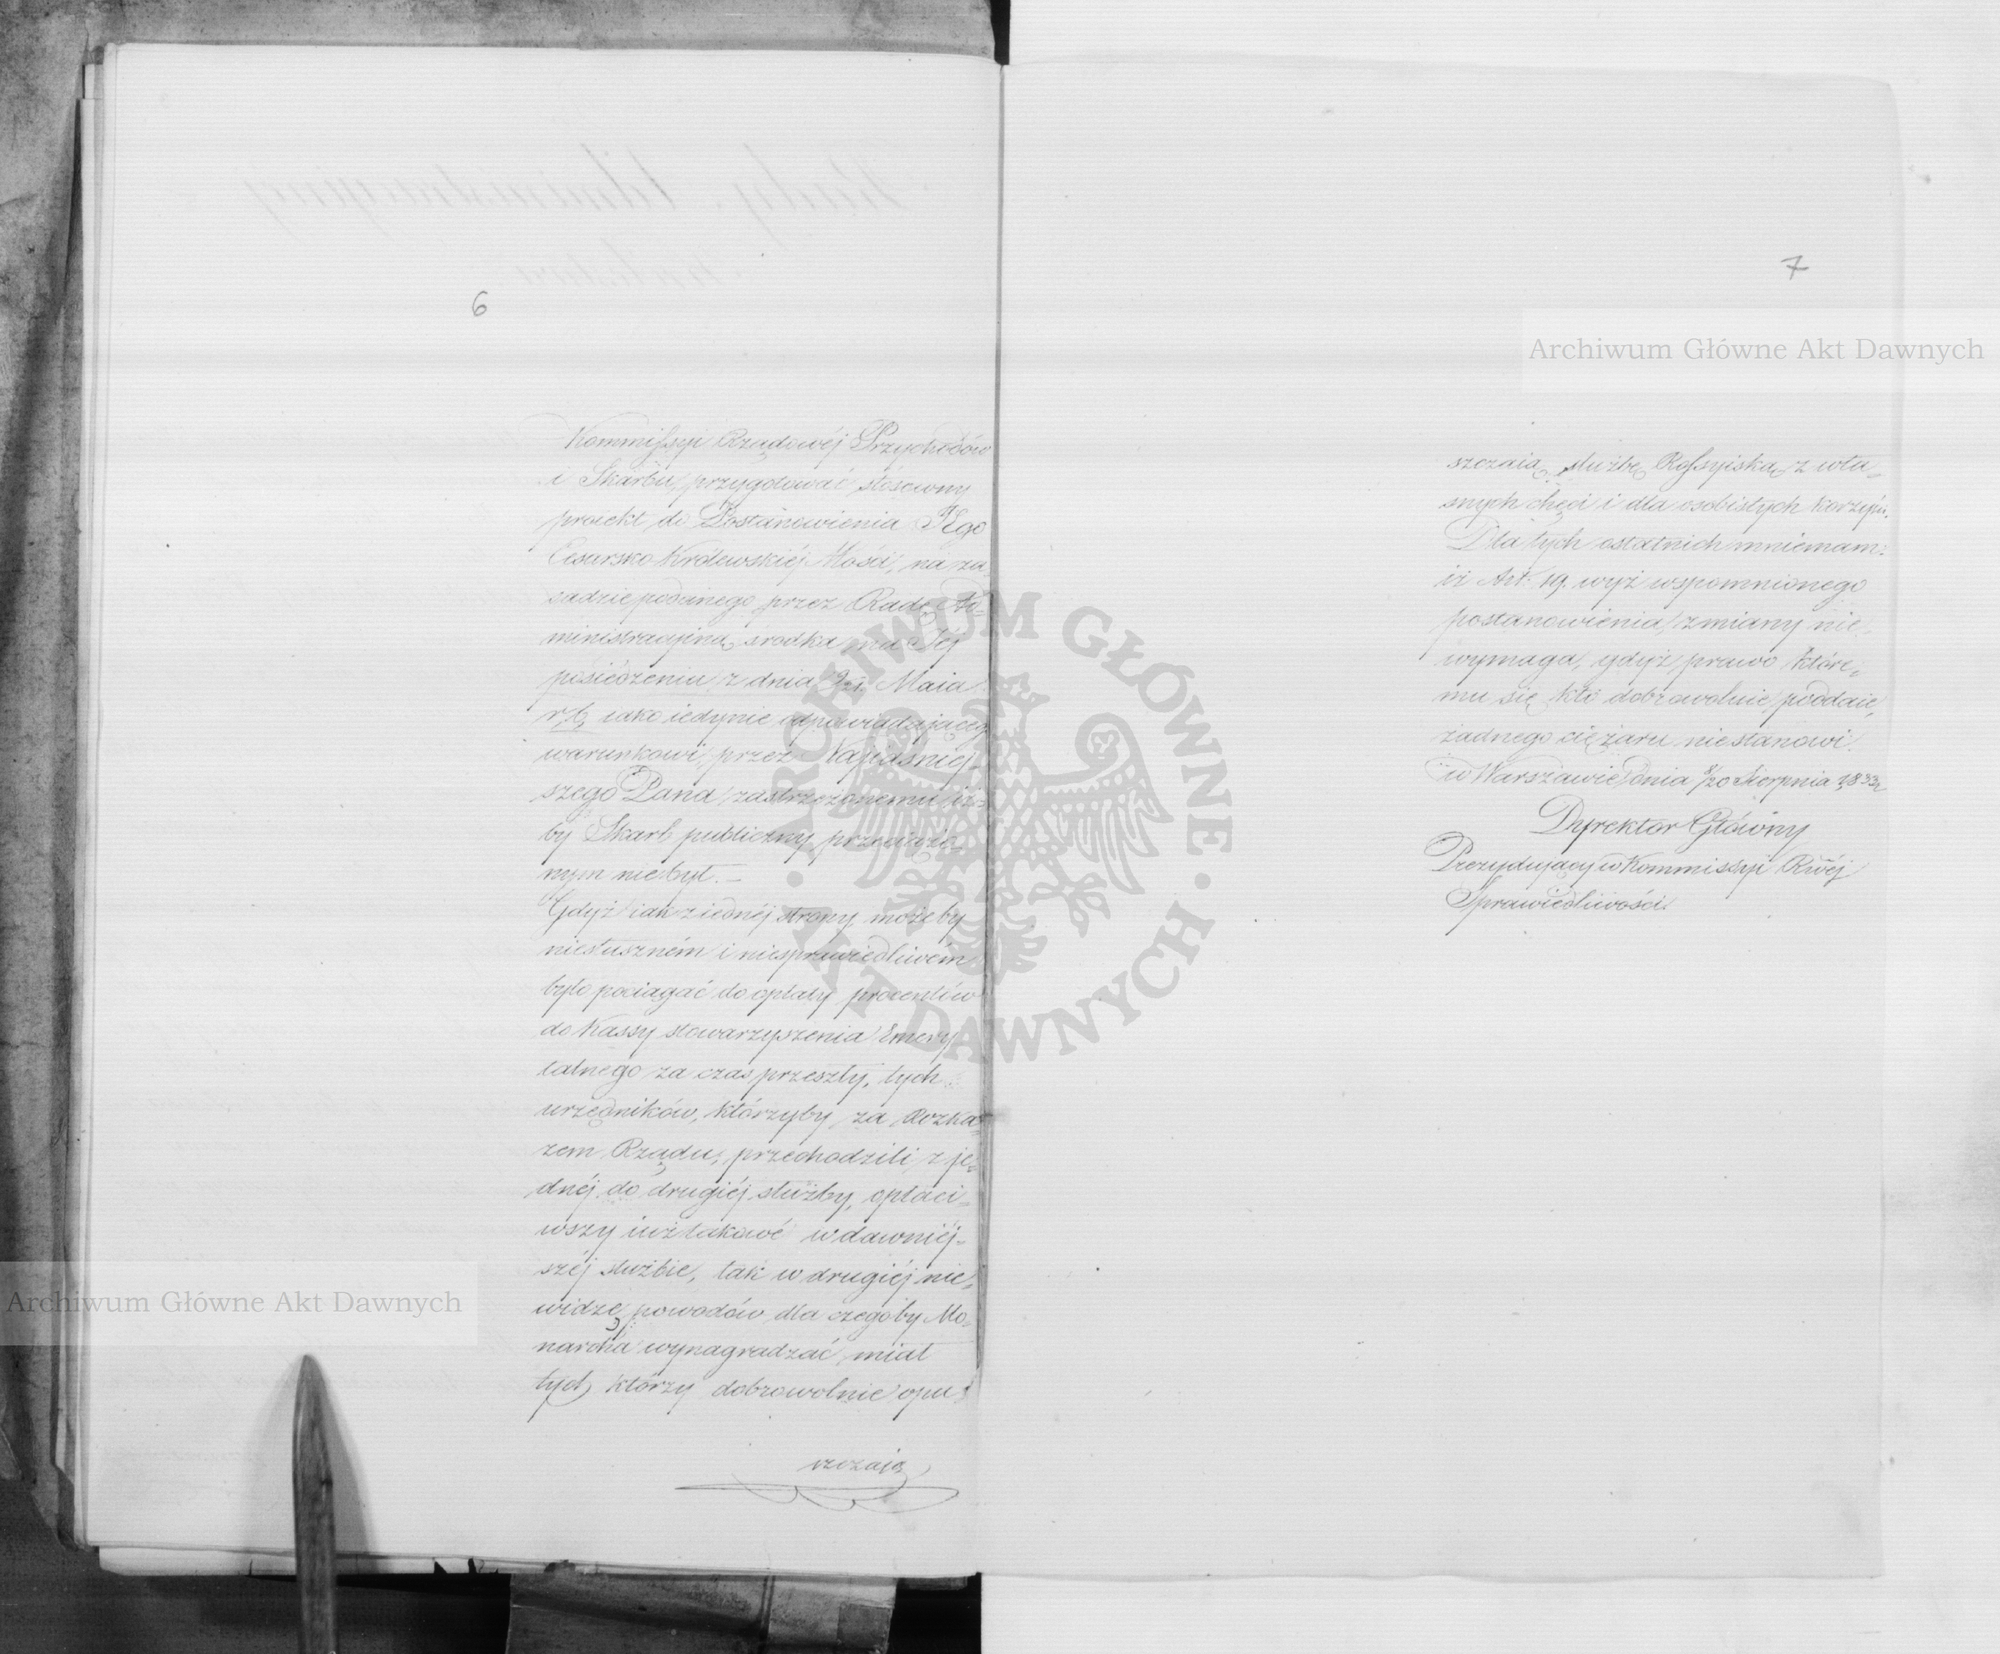 6
Kommissyi Rządowéj Przychodów
i Skarbu, przygotować stósowny
proiekt do Postanowienia JEgo
Cesarsko Królewskiéj Mości, na za-
sadzie podanego przez Radę Ad-
ministracyiną srodka, na Jéj
posiedzeniu z dnia 21. Maia
r. b. iako iedynie odpowiadaiącego
warunkowi przez Najiaśniej-
szego Pana zastrzeżonemu, iż-
by Skarb publiczny przeciążo-
nym nie był. —
Gdyż iak z iednéj strony może by
niesłuszném i niesprawiedliwém
było pociągać do opłaty procentów
do Kassy stowarzyszenia Emery
talnego za czas przeszły, tych
urzędników, którzyby za Rozka-
zem Rządu, przechodzili z je-
dnéj do drugiéj służby, opłaci-
wszy iuż takowé w dawniéj-
széj służbie, tak w drugiéj nie-
widzę powodów dla czegoby Mo-
narcha wynagradzać miał
tych, którzy dobrowolnie opu
szczaią
7
szczaią służbę Rossyiską z wła-
snych chęci i dla osobistych korzyści.
Dla tych ostatnich mniemam:
iż Art. 19. wyż wspomnionego
postanowienia, zmiany nie-
wymaga, gdyż prawo które-
mu się kto dobrowolnie poddaie,
żadnego ciężaru niestanowi.
w Warszawie dnia 8/20 Sierpnia 1833 r.
Dyrektor Główny
Prezyduiący w Kommissyi Rwéj
Sprawiedliwości.
Archiwum Główne Akt Dawnych
Archiwum Główne Akt Dawnych
ARCHIWUM GŁÓWNE · AKT DAWNYCH ·